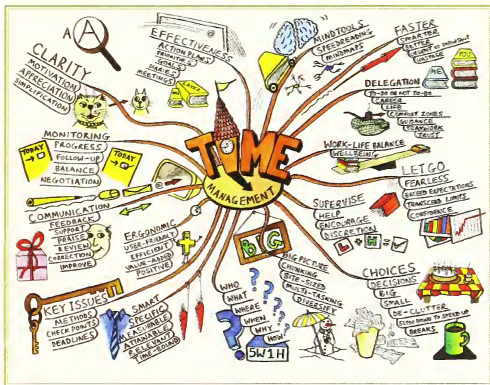 A
A
CLARITY
MOTIVATION
APPRECIATION
SIMPLIFICATION
EFFECTIVENESS
ACTION PLANS
PRIORITIES
GOALS
DIARIES
MEETINGS
LATER
MINDTOOLS
SPEEDREADING
MINDMAPS
FASTER
SMARTER
BETTER
URGENT VS IMPORTANT
ME
DELEGATION
TO-DO OR NOT TO-DO
CAREER
LIFE
COMFORT ZONES
GUIDANCE
TEAMWORK
TRUST
WORK-LIFE BALANCE
WELLBEING
LET GO
FEARLESS
EXCEED EXPECTATIONS
TRANSCEND LIMITS
CONFIDENCE
SUPERVISE
HELP
ENCOURAGE
DISCRETION
CHOICES
DECISIONS
BIG
SMALL
DE-CLUTTER
SLOW DOWN TO SPEED UP
BREAKS
BIG
BIG PICTURE
CHUNKING
BITE-SIZED
MULTI-TASKING
DIVERSIFY
WHO
WHAT
WHERE
WHEN
WHY
HOW
5W1H
SMART
SPECIFIC
MEASURABLE
ATTAINABLE
RELEVANT
TIME-BOUND
ERGONOMIC
USER-FRIENDLY
EFFICIENT
VALUE-ADDED
POSITIVE
KEY ISSUES
METHODS
CHECK POINTS
DEADLINES
COMMUNICATION
FEEDBACK
SUPPORT
PRAISE
REVIEW
CORRECTION
IMPROVE
MONITORING
PROGRESS
FOLLOW-UP
BALANCE
NEGOTIATION
TODAY
TODAY
TIME
MANAGEMENT